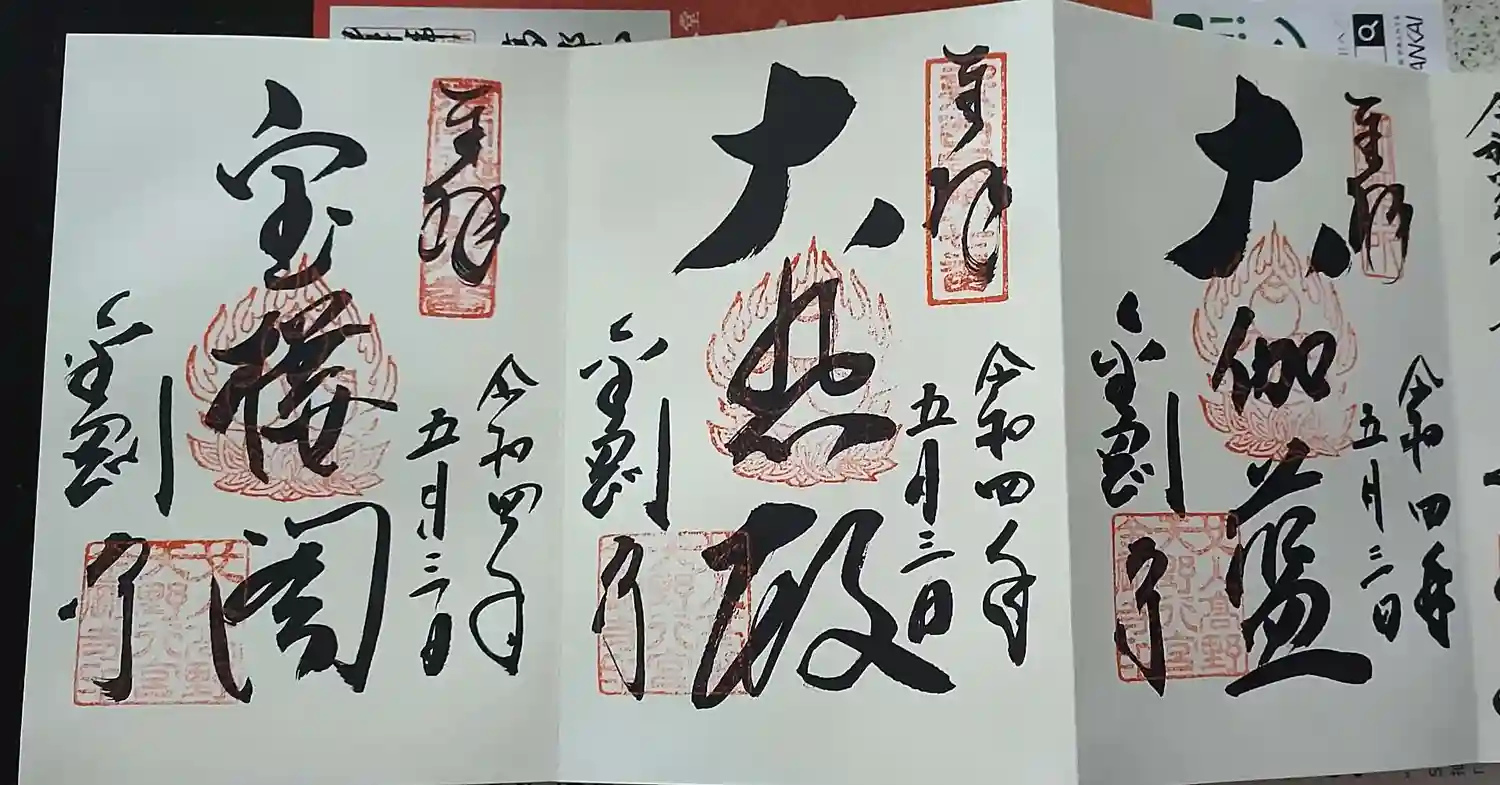 奉拝
令和四年
五月三日
大伽藍
金剛寺
奉拝
令和四年
五月三日
大悲殿
金剛寺
奉拝
令和四年
五月三日
宝楼閣
金剛寺